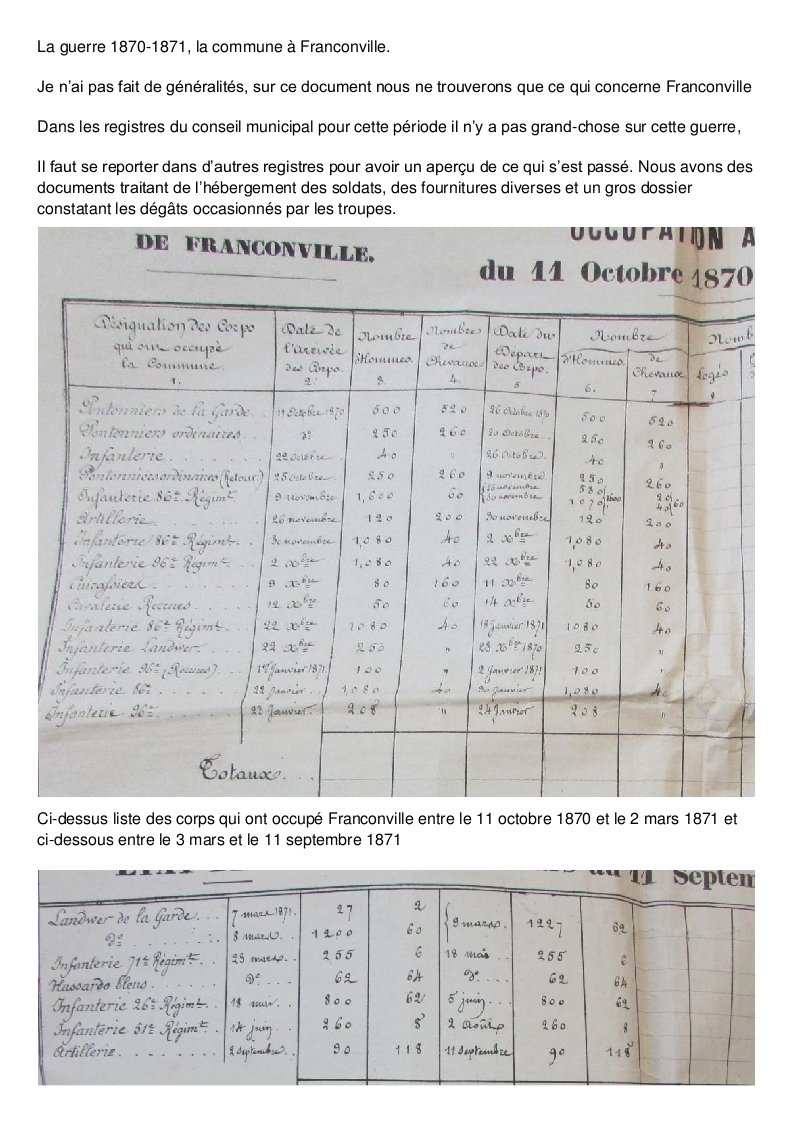 La guerre 1870-1871, la commune à Franconville.
Je n'ai pas fait de généralités, sur ce document nous ne trouverons que ce qui concerne Franconville
Dans les registres du conseil municipal pour cette période il n'y a pas grand-chose sur cette guerre,
Il faut se reporter dans d'autres registres pour avoir un aperçu de ce qui s'est passé. Nous avons des
documents traitant de l'hébergement des soldats, des fournitures diverses et un gros dossier
constatant les dégâts occasionnés par les troupes.
DE FRANCONVILLE. OCCUPATION A
du 11 Octobre 1870
Désignation des Corps Date de Nombre Nombre Date du Nombre Nomb
qui ont occupé l'arrivée d'Hommes. de Départ d'Hommes. de Logés
la Commune des Corps. Chevaux des Corps. Chevaux
1. 2. 3. 4. 5 6. 7 8
Pontonniers de la Garde. . 11 Octobre 1870 500 520 26 Octobre 1870 500 520
Pontonniers ordinaires. . . dº 250 260 20 Octobre. . 250 260
Infanterie. . . . . . . 22 Octobre. 40 " 26 Octobre. 40 "
Pontonniers ordinaires (Retour) 25 Octobre. . 250 260 9 novembre 250 260
Infanterie 86e Régimt. . 9 novembre 1,600 60 { 26 novembre 580 } 1600 20 } 60
30 novembre 1070 40
Artillerie. . . . . . . 26 novembre 120 200 30 novembre 120 200
Infanterie 86e Régimt. . . 30 novembre 1,080 40 2 Xbre 1,080 40
Infanterie 96e Régimt. . . 2 Xbre 1,080 40 22 Xbre 1,080 40
Cuirassiers . . . . . 9 Xbre 80 160 11 Xbre 80 160
Cavalerie Recrues. . . . . 12 Xbre 50 60 14 Xbre 50 60
Infanterie 86e Régimt. . . . 22 Xbre 1080 40 18 Janvier 1871 1080 40
Infanterie Landwer. . . . 22 Xbre 250 " 23 Xbre 1870 250 "
Infanterie 96e (Recrues) . . . 1er Janvier 1871. 100 " 2 Janvier 1871 100 "
Infanterie 86e. . . . . . . 22 Janvier . . 1,080 40 30 Janvier. 1,080 40
Infanterie 96e. . . . . . 23 Janvier. 208 " 24 Janvier 208 "
Totaux. . .
Ci-dessus liste des corps qui ont occupé Franconville entre le 11 octobre 1870 et le 2 mars 1871 et
ci-dessous entre le 3 mars et le 11 septembre 1871
au 11 Septem
Landwer de la Garde. . . 7 mars 1871. 27 2 { 9 mars. 1227 62
dº . . . . . . . 8 mars. . 1200 60
Infanterie 71e Régimt. . 23 mars. . 255 6 18 mai . . 255 6
Hussards bleus. . . . . . dº. . . . 62 64 dº. . . . 62 64
Infanterie 26e Régimt. . . 18 mai. . . 800 62 5 juin. . . 800 62
Infanterie 51e Régimt. . . 14 juin. . . 260 8 2 Août 260 8
Artillerie. . . . . . . . 2 septembre. . 90 118 11 Septembre 90 118